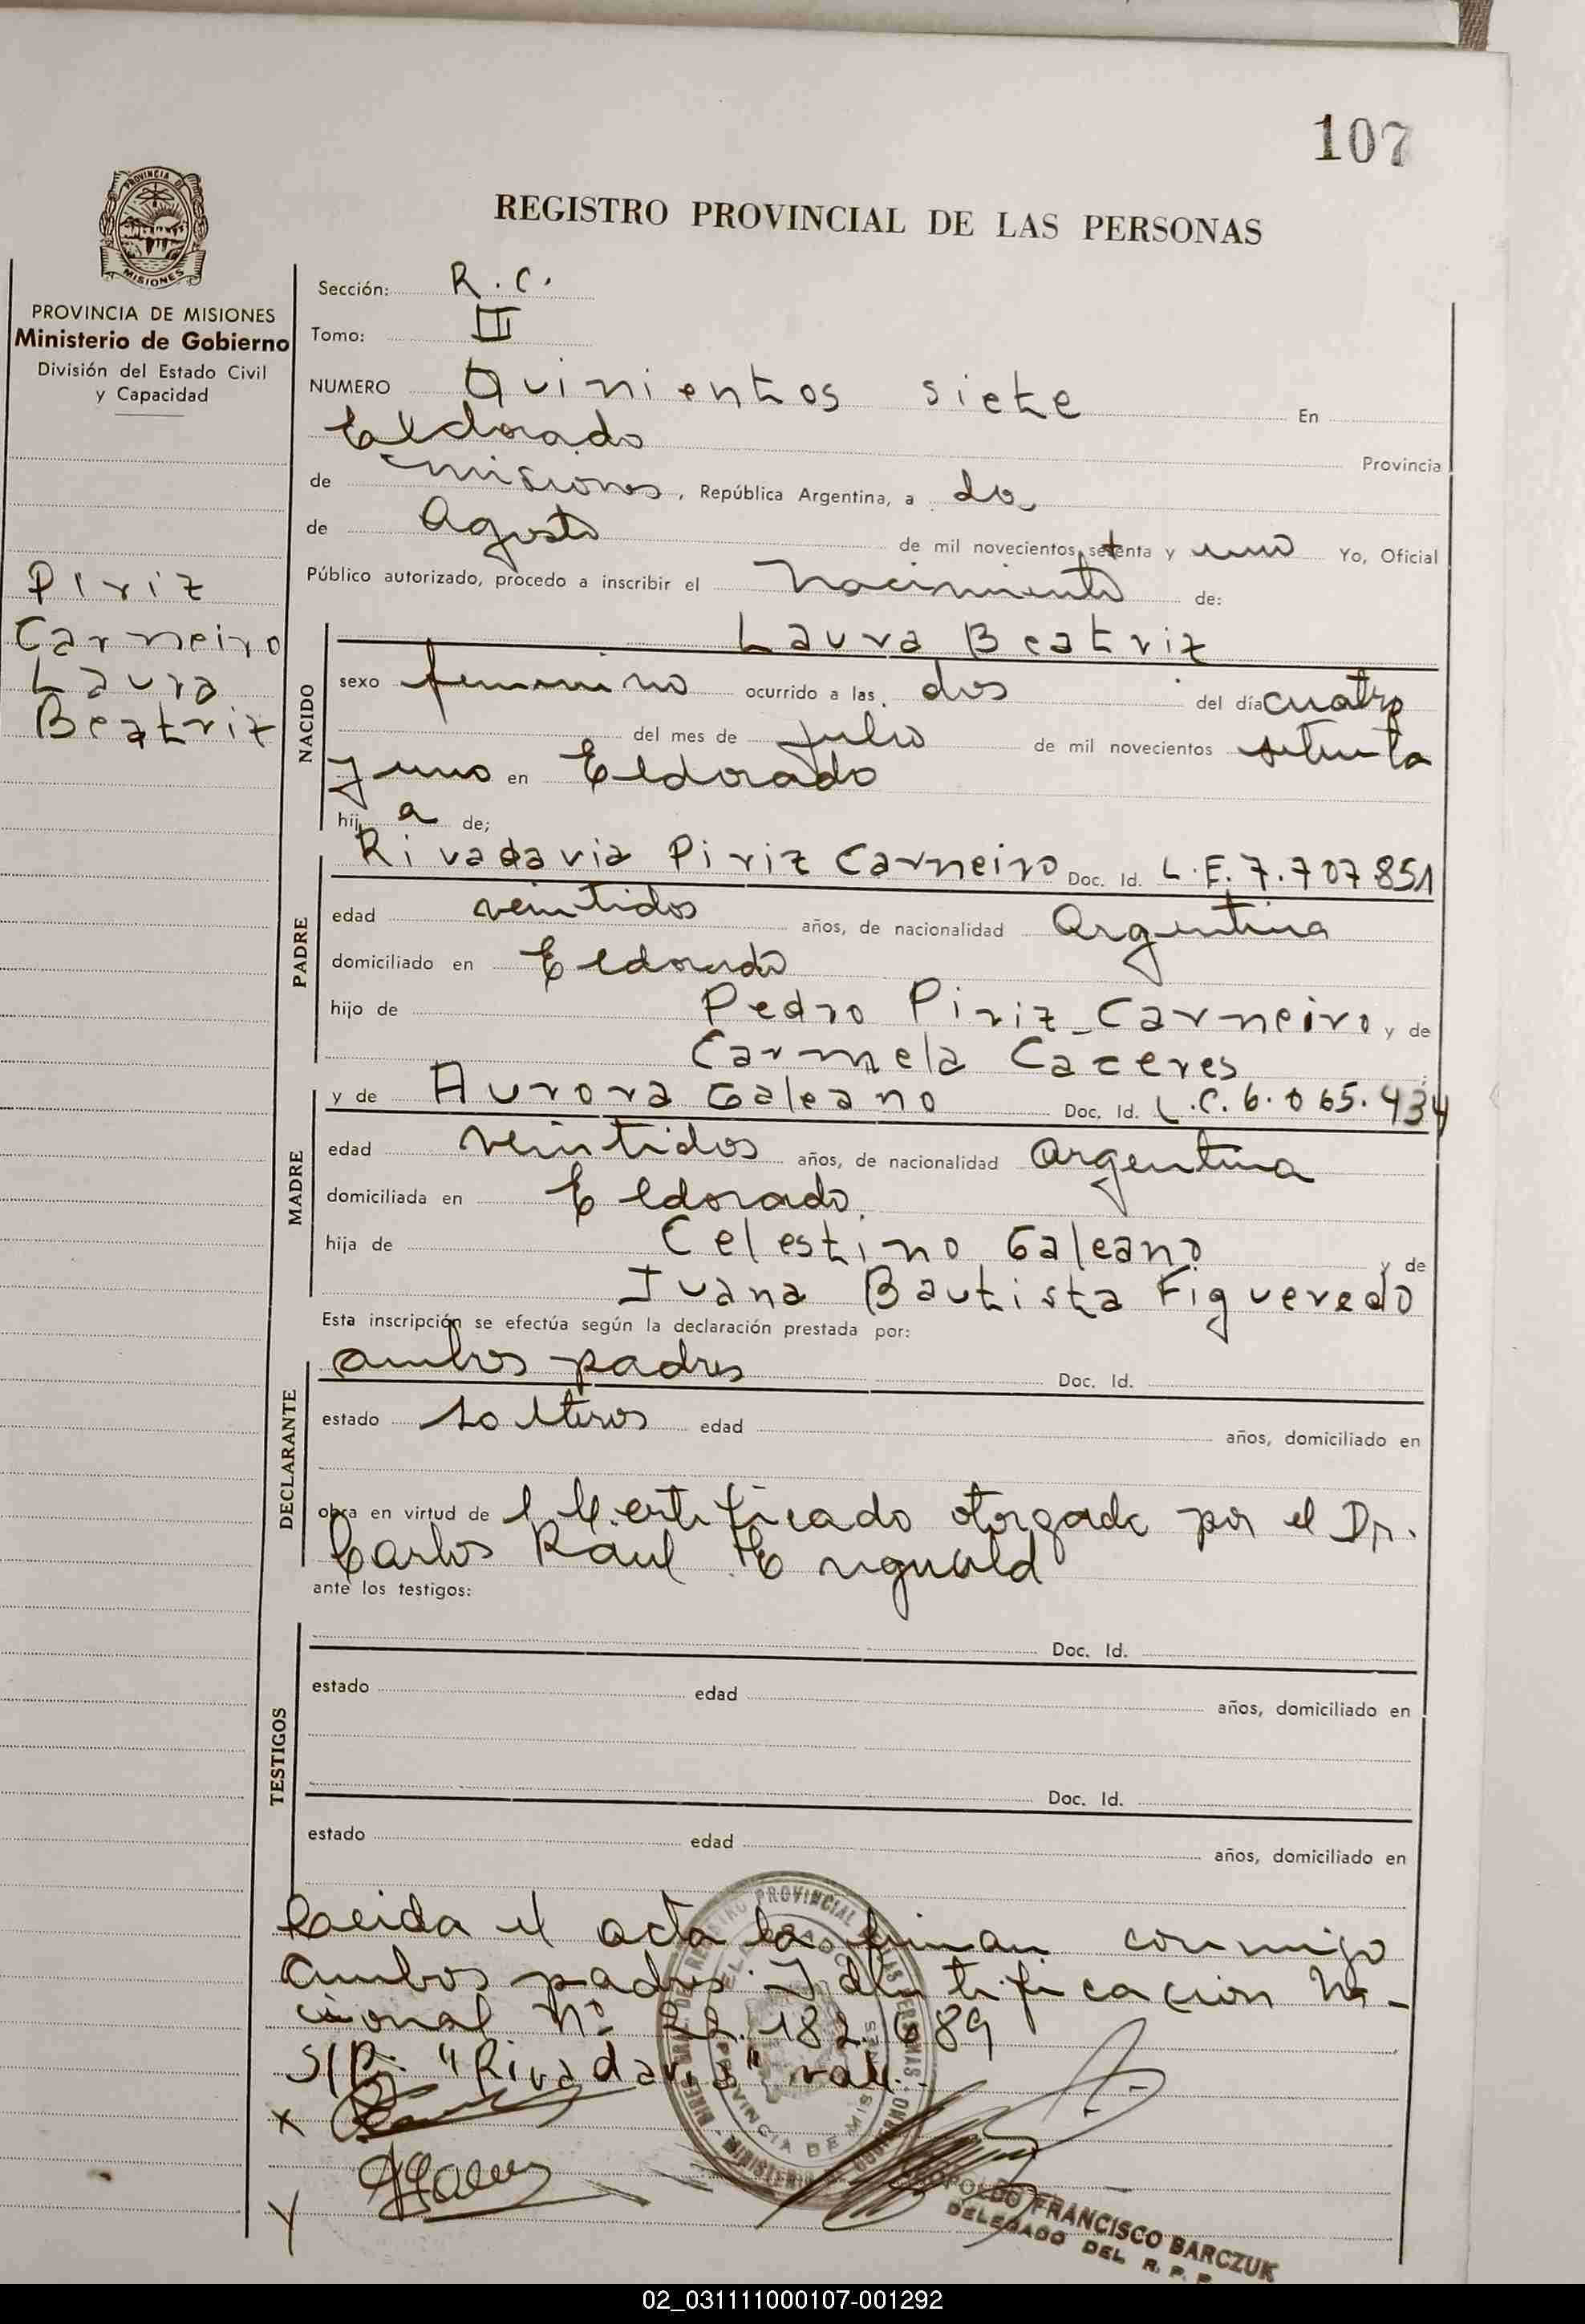 107
PROVINCIA DE
MISIONES
REGISTRO PROVINCIAL DE LAS PERSONAS
PROVINCIA DE MISIONES
Ministerio de Gobierno
División del Estado Civil
y Capacidad
Piriz
Carneiro
Laura
Beatriz
Sección: R.C.
Tomo: III
NUMERO Quinientos siete En
Eldorado Provincia
de misiones, República Argentina, a dos
de Agosto de mil novecientos setenta y uno Yo, Oficial
Público autorizado, procedo a inscribir el Nacimiento de:
NACIDO
Laura Beatriz
sexo femenino ocurrido a las dos del día cuatro
del mes de julio de mil novecientos setenta
y uno en Eldorado
hij a de;
PADRE
Rivadavia Piriz Carneiro Doc. Id. L.E. 7.707.851
edad veintidos años, de nacionalidad Argentina
domiciliado en Eldorado
hijo de Pedro Piriz Carneiro y de
Carmela Caceres
MADRE
y de Aurora Galeano Doc. Id. L.C. 6.065.434
edad veintidos años, de nacionalidad argentina
domiciliada en Eldorado.
hija de Celestino Galeano y de
Juana Bautista Figueredo
Esta inscripción se efectúa según la declaración prestada por:
DECLARANTE
ambos padres Doc. Id.
estado solteros edad años, domiciliado en
obra en virtud de certificado otorgado por el Dr.
Carlos Raul
ante los testigos:
TESTIGOS
Doc. Id.
estado edad años, domiciliado en
Doc. Id.
estado edad años, domiciliado en
Leida el acta la firman conmigo
ambos padres. Identificacion Na-
cional Nº 22.182.689
S/R: "Rivadavia" vale.
x
LEOPOLDO FRANCISCO BARCZUK
DELEGADO DEL R. P. P.
02_031111000107-001292